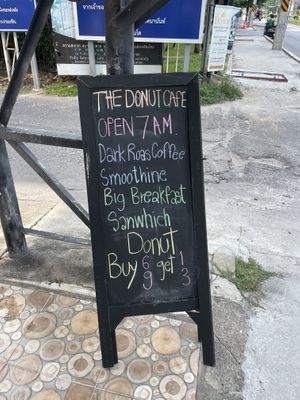 THE DONUT CAFE
OPEN 7 AM.
Dark Roas Coffee
Smoothine
Big Breakfast
Sanwhich
Donut
Buy 6 get 1
9 3